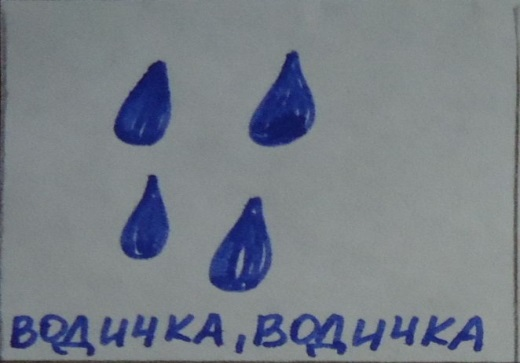 ВОДИЧКА, ВОДИЧКА